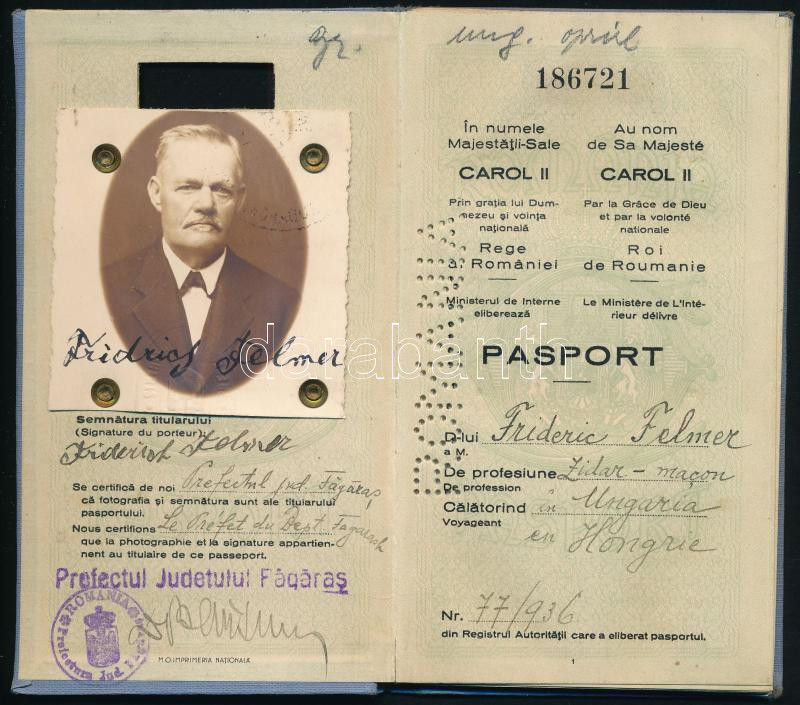 gr.
Fridrich Felmer
Semnătura titularului
(Signature du porteur):
Fiderich Felmer
Se certifică de noi Prefectul jud. Făgăraș
că fotografia și semnătura sunt ale titularului
pasportului.
Nous certifions Le Préfet du Dept. Fagarash
que la photographie et la signature appartien-
nent au titulaire de ce passeport.
Prefectul Judetului Făgăraș
ROMANIA
Prefectura Jud.
M.O. IMPRIMERIA NAȚIONALĂ
ung. april
186721
În numele
Majestății-Sale
CAROL II
Prin grația lui Dum-
nezeu și voința
națională
Rege
al României
Ministerul de Interne
eliberează
Au nom
de Sa Majesté
CAROL II
Par la Grâce de Dieu
et par la volonté
nationale
Roi
de Roumanie
Le Ministère de L'Inté-
rieur délivre
ROMANIA
PASPORT
D-lui Frideric Felmer
a M.
De profesiune Zidar - maçon
De profession
Călătorind în Ungaria
Voyageant en Hongrie
Nr. 77/936
din Registrul Autorității care a eliberat pasportul.
1
darabanth